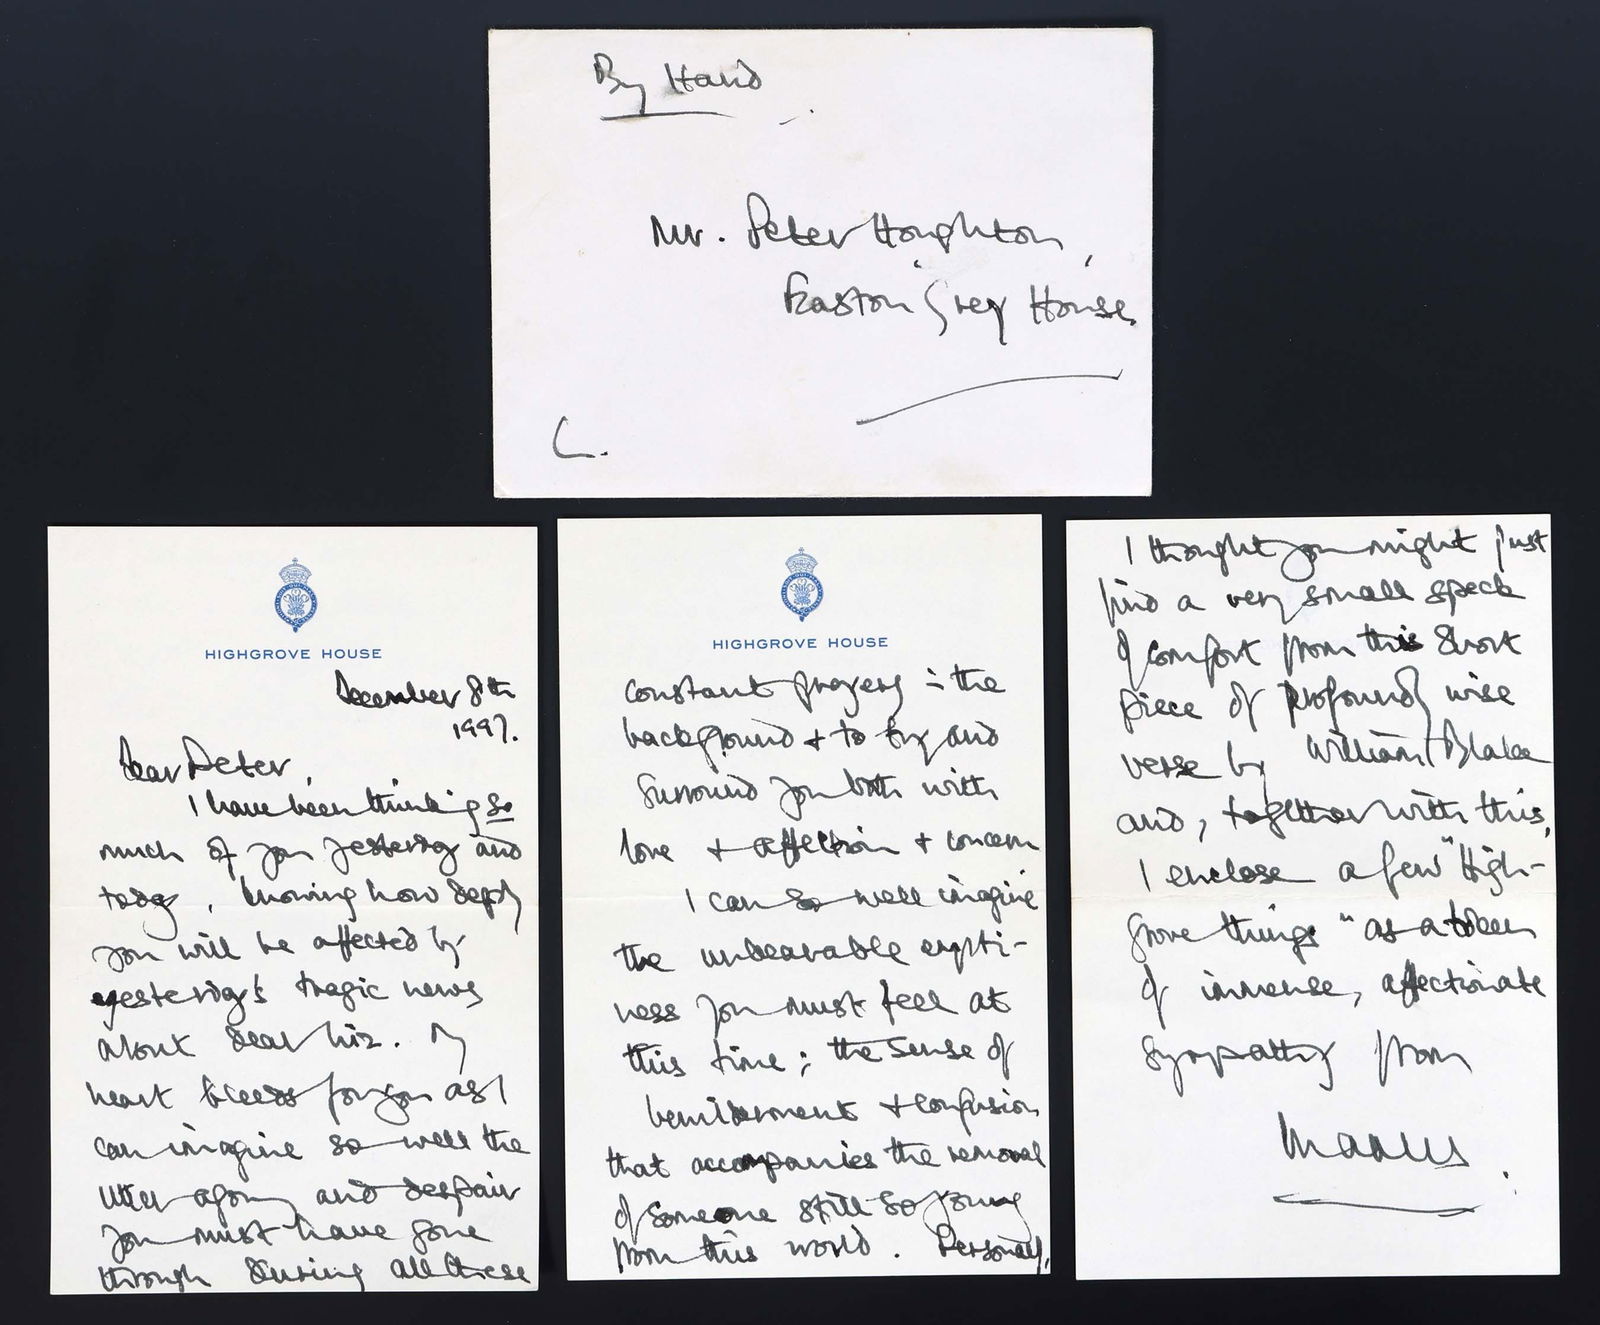 By Hand
Mr. Peter Houghton,
Easton Grey House.
C.
HIGHGROVE HOUSE
December 8th
1997.
Dear Peter,
I have been thinking so
much of you yesterday and
today, knowing how deeply
you will be affected by
yesterday's tragic news
about dear Liz. My
heart bleeds for you as I
can imagine so well the
utter agony and despair
you must have gone
through during all these
HIGHGROVE HOUSE
constant prayers in the
background & to try and
surround you both with
love & affection & concern
I can so well imagine
the unbearable empti-
ness you must feel at
this time; the sense of
bewilderment & confusion
that accompanies the removal
of someone still so young
from this world. Personally,
I thought you might just
find a very small speck
of comfort from this short
piece of profoundly wise
verse by William Blake
and, together with this,
I enclose a few "High-
grove things" as a token
of immense, affectionate
sympathy from